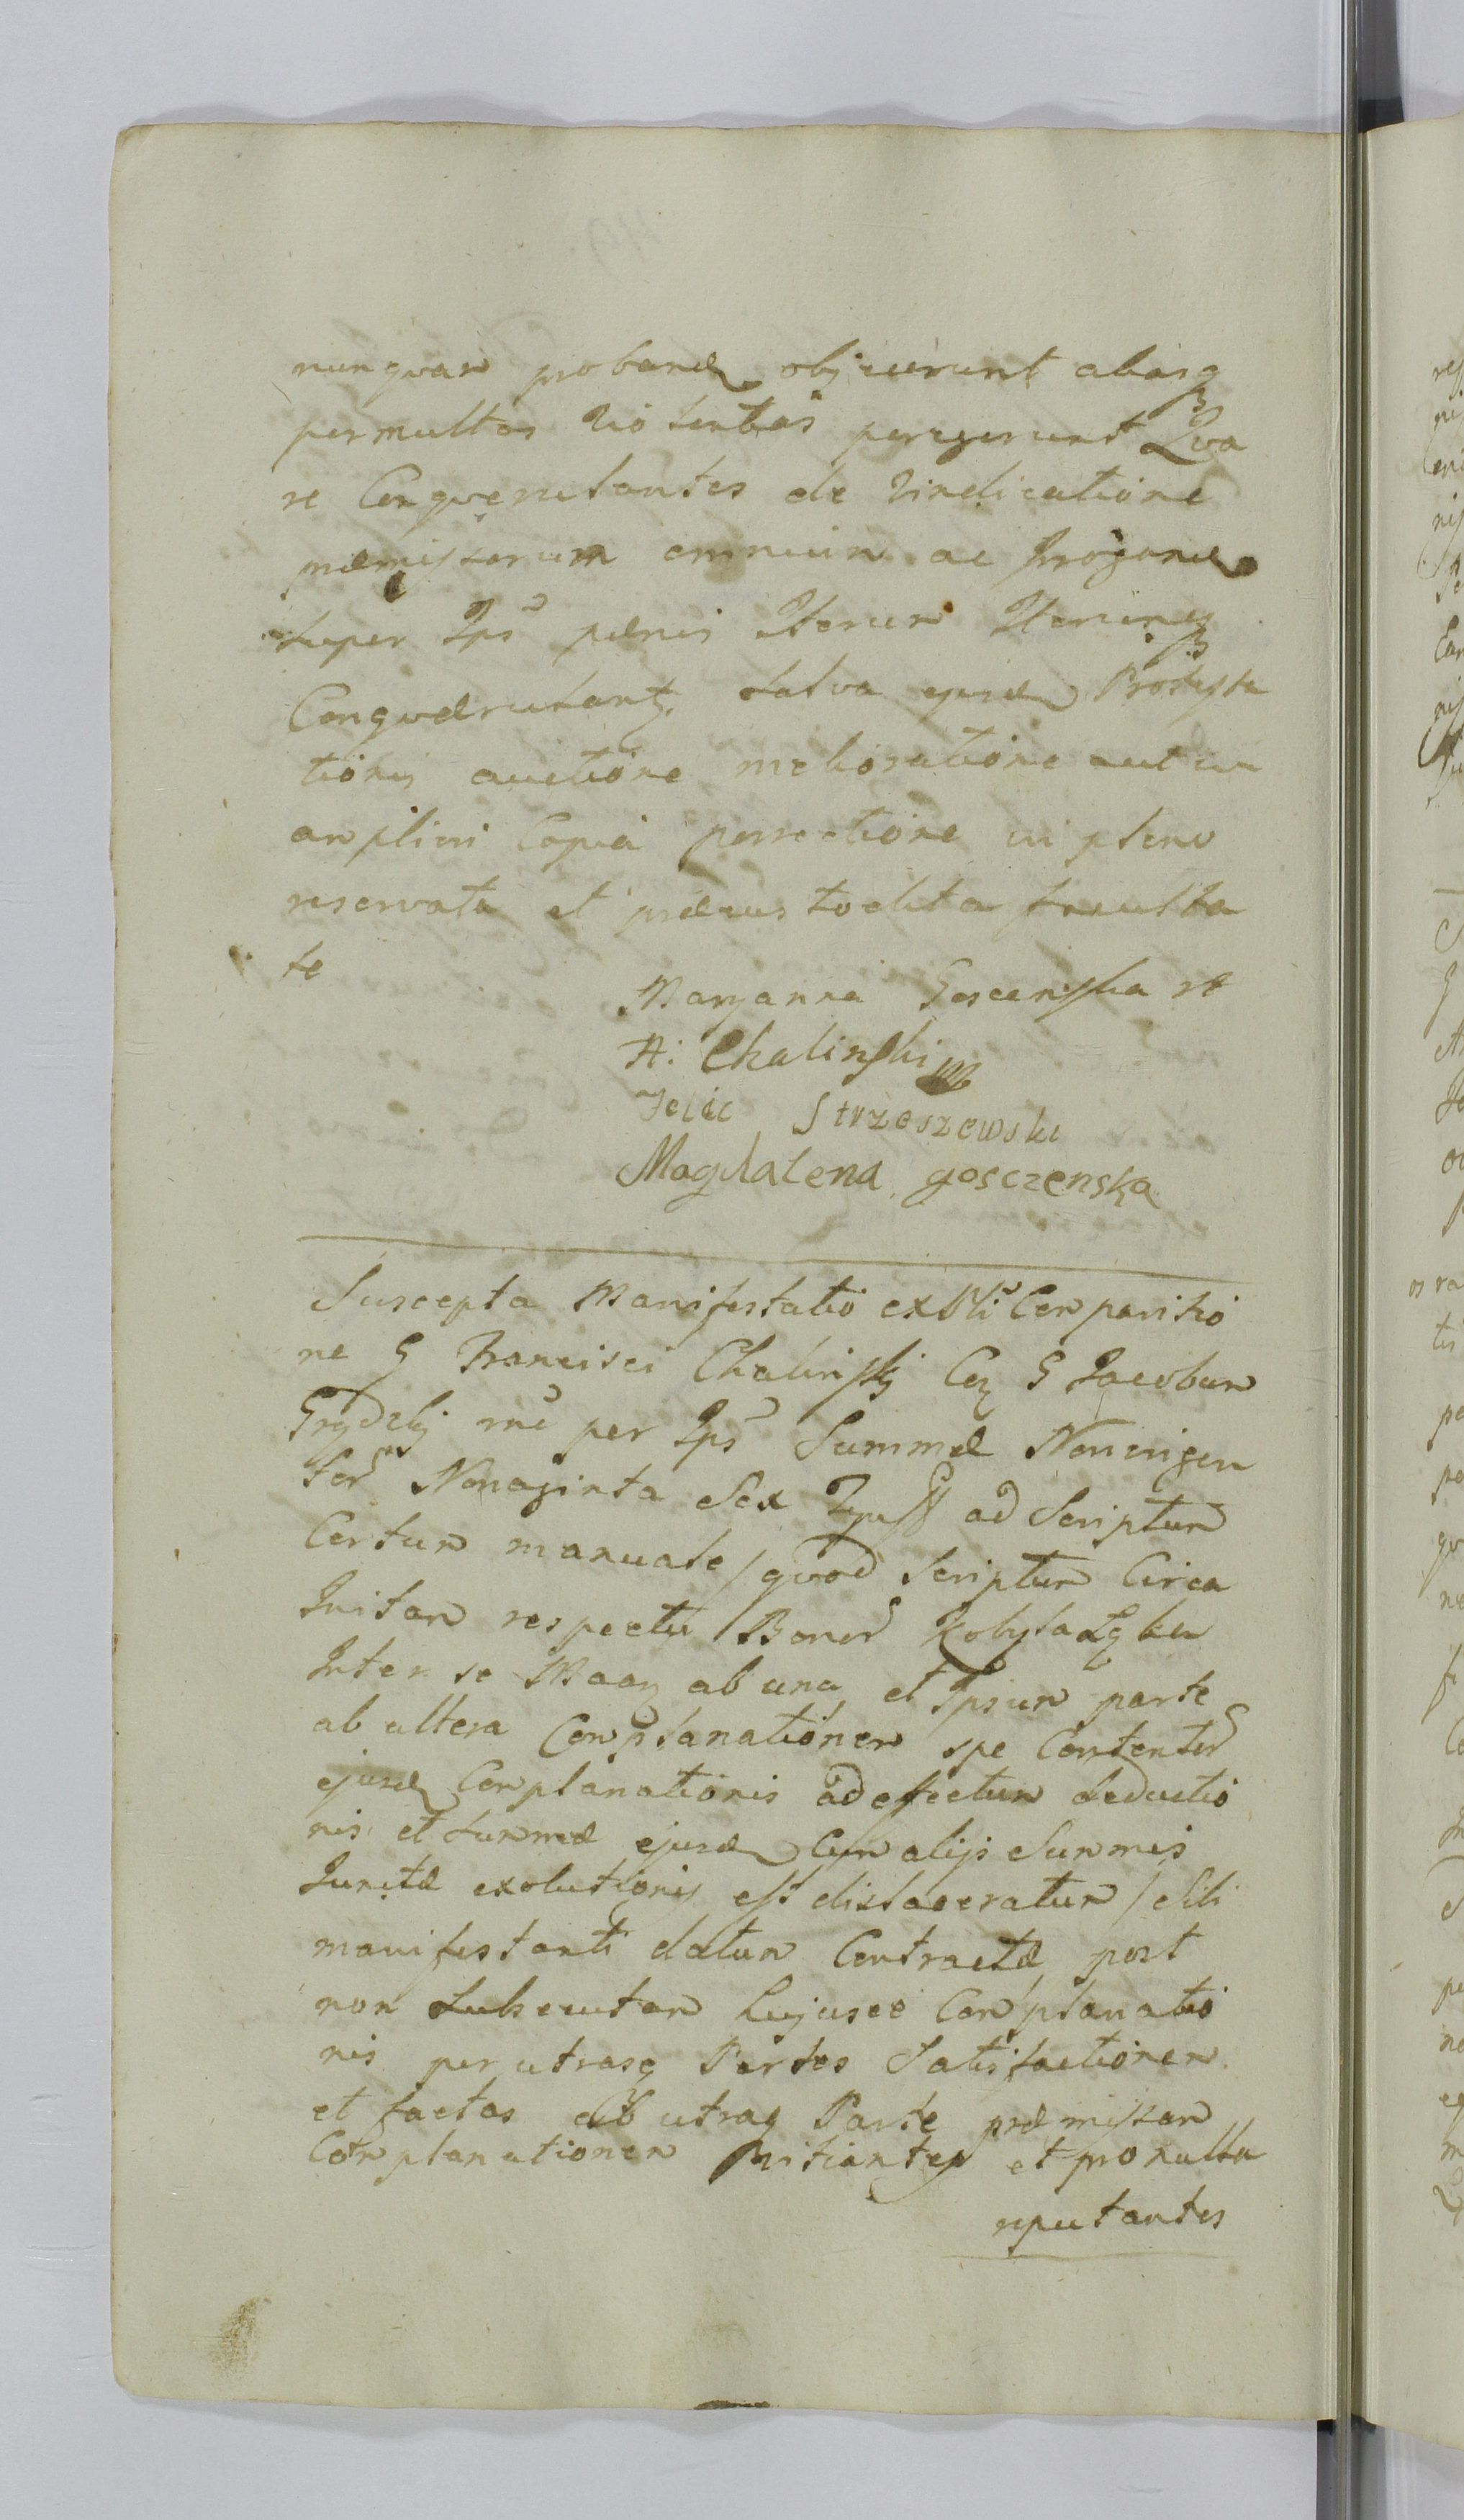 nunquam proband objicierunt aliasq
permultas violentias peregerunt Qva
re Conqverulantes de vindicatione
præmissorum omnium ac irrogand
super Ips pœnis Iterum Iterumq
Conqværulant, salva ejusd Protesta
tionis auctione melioratione aut in
amplini Copia porrectione in pleno
reservata et præcustodita faculta
te
Maryanna Goscenska
A: Chalinski
Felic Strzeszewski
Magdalena gosczenska
Suscepta Manifestatio ex Comparitio
ne G Francisci Chalinskj G Jacobum
per Ips Summæ Noningen
tor Nonaginta Sex ad Scriptum
Certum manuale / qvod Scriptum Circa
Initam respectu Bonor
Inter se ab una et Ipsum parte
ab altera Complanationem spe Contentor
ejusd Complanationis ad effectum deductio
nis et summæ ejusd Cum alijs Summis
Junctæ exolutionis est dislaceratum / Sibi
manifestanti datum Contractæ post
non Subsecutam hujusce Complanatio
nis per utrasq Partes Satisfactionem
et factas ab utraq Parte præmissam
Complanationem et pro nulla
reputantes